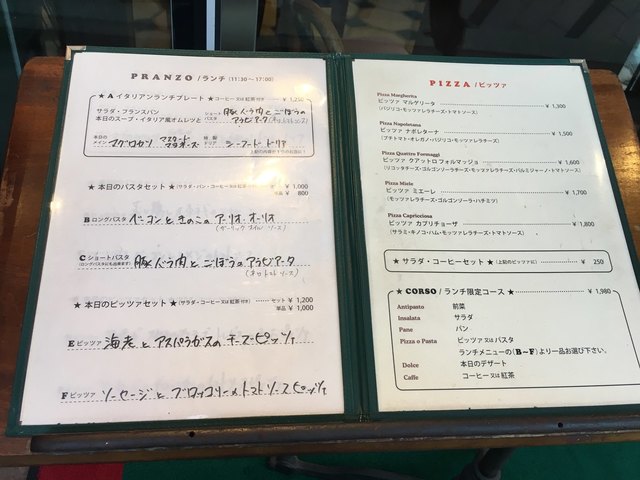 PRANZO /ランチ (11:30〜17:00)
★ A イタリアンランチプレート ★ コーヒー又は紅茶付き ¥ 1,250
サラダ・フランスパン
本日のスープ・イタリア風オムレツと
ショートパスタ 豚バラ肉とごぼうの
アラビアータ
本日のメイン マグロカツ マスタードマヨネーズ
特製ドリア シーフードドリア
★ 本日のパスタセット ★ (サラダ・パン・コーヒー又は紅茶付き) ¥ 1,000
単品 ¥ 800
B ロングパスタ ベーコンときのこのアーリオ・オーリオ
(ガーリックオイルソース)
C ショートパスタ 豚バラ肉とごぼうのアラビアータ
(ロングパスタにも出来ます)
★ 本日のピッツァセット ★ (サラダ・コーヒー又は紅茶付き) セット ¥ 1,200
単品 ¥ 1,000
E ピッツァ 海老とアスパラガスのチーズピッツァ
F ピッツァ ソーセージとブロッコリーのトマトソースピッツァ
PIZZA /ピッツァ
Pizza Margherita
ピッツァ マルゲリータ ¥ 1,300
(バジリコ・モッツァレラチーズ・トマトソース)
Pizza Napoletana
ピッツァ ナポレターナ ¥ 1,500
(プチトマト・オレガノ・バジリコ・モッツァレラチーズ)
Pizza Quattro Formaggi
ピッツァ クアットロ フォルマッジョ ¥ 1,600
(リコッタチーズ・ゴルゴンゾーラチーズ・モッツァレラチーズ・パルミジャーノ・トマトソース)
Pizza Miele
ピッツァ ミエーレ ¥ 1,700
(モッツァレラチーズ・ゴルゴンゾーラ・ハチミツ)
Pizza Capricciosa
ピッツァ カプリチョーザ ¥ 1,800
(サラミ・キノコ・ハム・モッツァレラチーズ・トマトソース)
★ サラダ・コーヒーセット ★ (上記のピッツァに) ¥ 250
★ CORSO / ランチ限定コース ★ ¥ 1,980
Antipasto 前菜
Insalata サラダ
Pane パン
Pizza o Pasta ピッツァ 又は パスタ
ランチメニューの(B〜F)より一品お選び下さい。
Dolce 本日のデザート
Caffe コーヒー 又は 紅茶